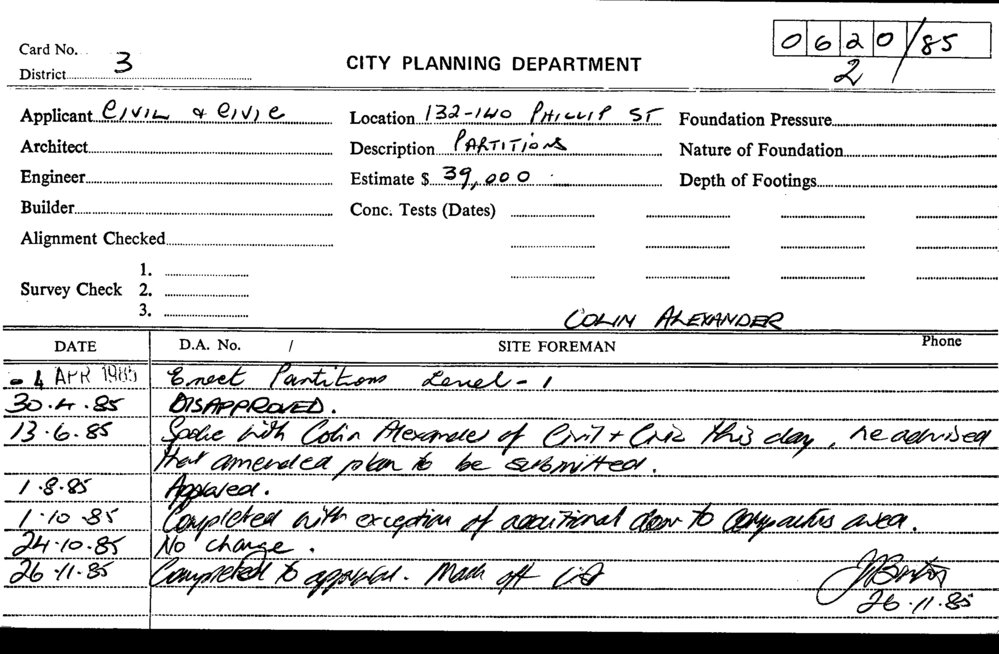 Card No.
0620/85
District 3
2
CITY PLANNING DEPARTMENT
Applicant CIVIL & CIVIC
Location 132-140 PHILLIP ST
Foundation Pressure
Architect
Description PARTITIONS
Nature of Foundation
Engineer
Estimate $ 39,000
Depth of Footings
Builder
Conc. Tests (Dates)
Alignment Checked
Survey Check
1.
2.
3.
COLIN ALEXANDER
DATE
D.A. No. /
SITE FOREMAN
Phone
- 4 APR 1985 Erect Partitions Level - 1
30.4.85 DISAPPROVED.
13.6.85 Spoke with Colin Alexander of Civil + Civic this day, he advised
that amended plan to be submitted.
1.8.85 Approved.
1.10.85 Completed with exception of additional door to compactus area.
24.10.85 No change.
26.11.85 Completed to approval. Mark off list
26.11.85